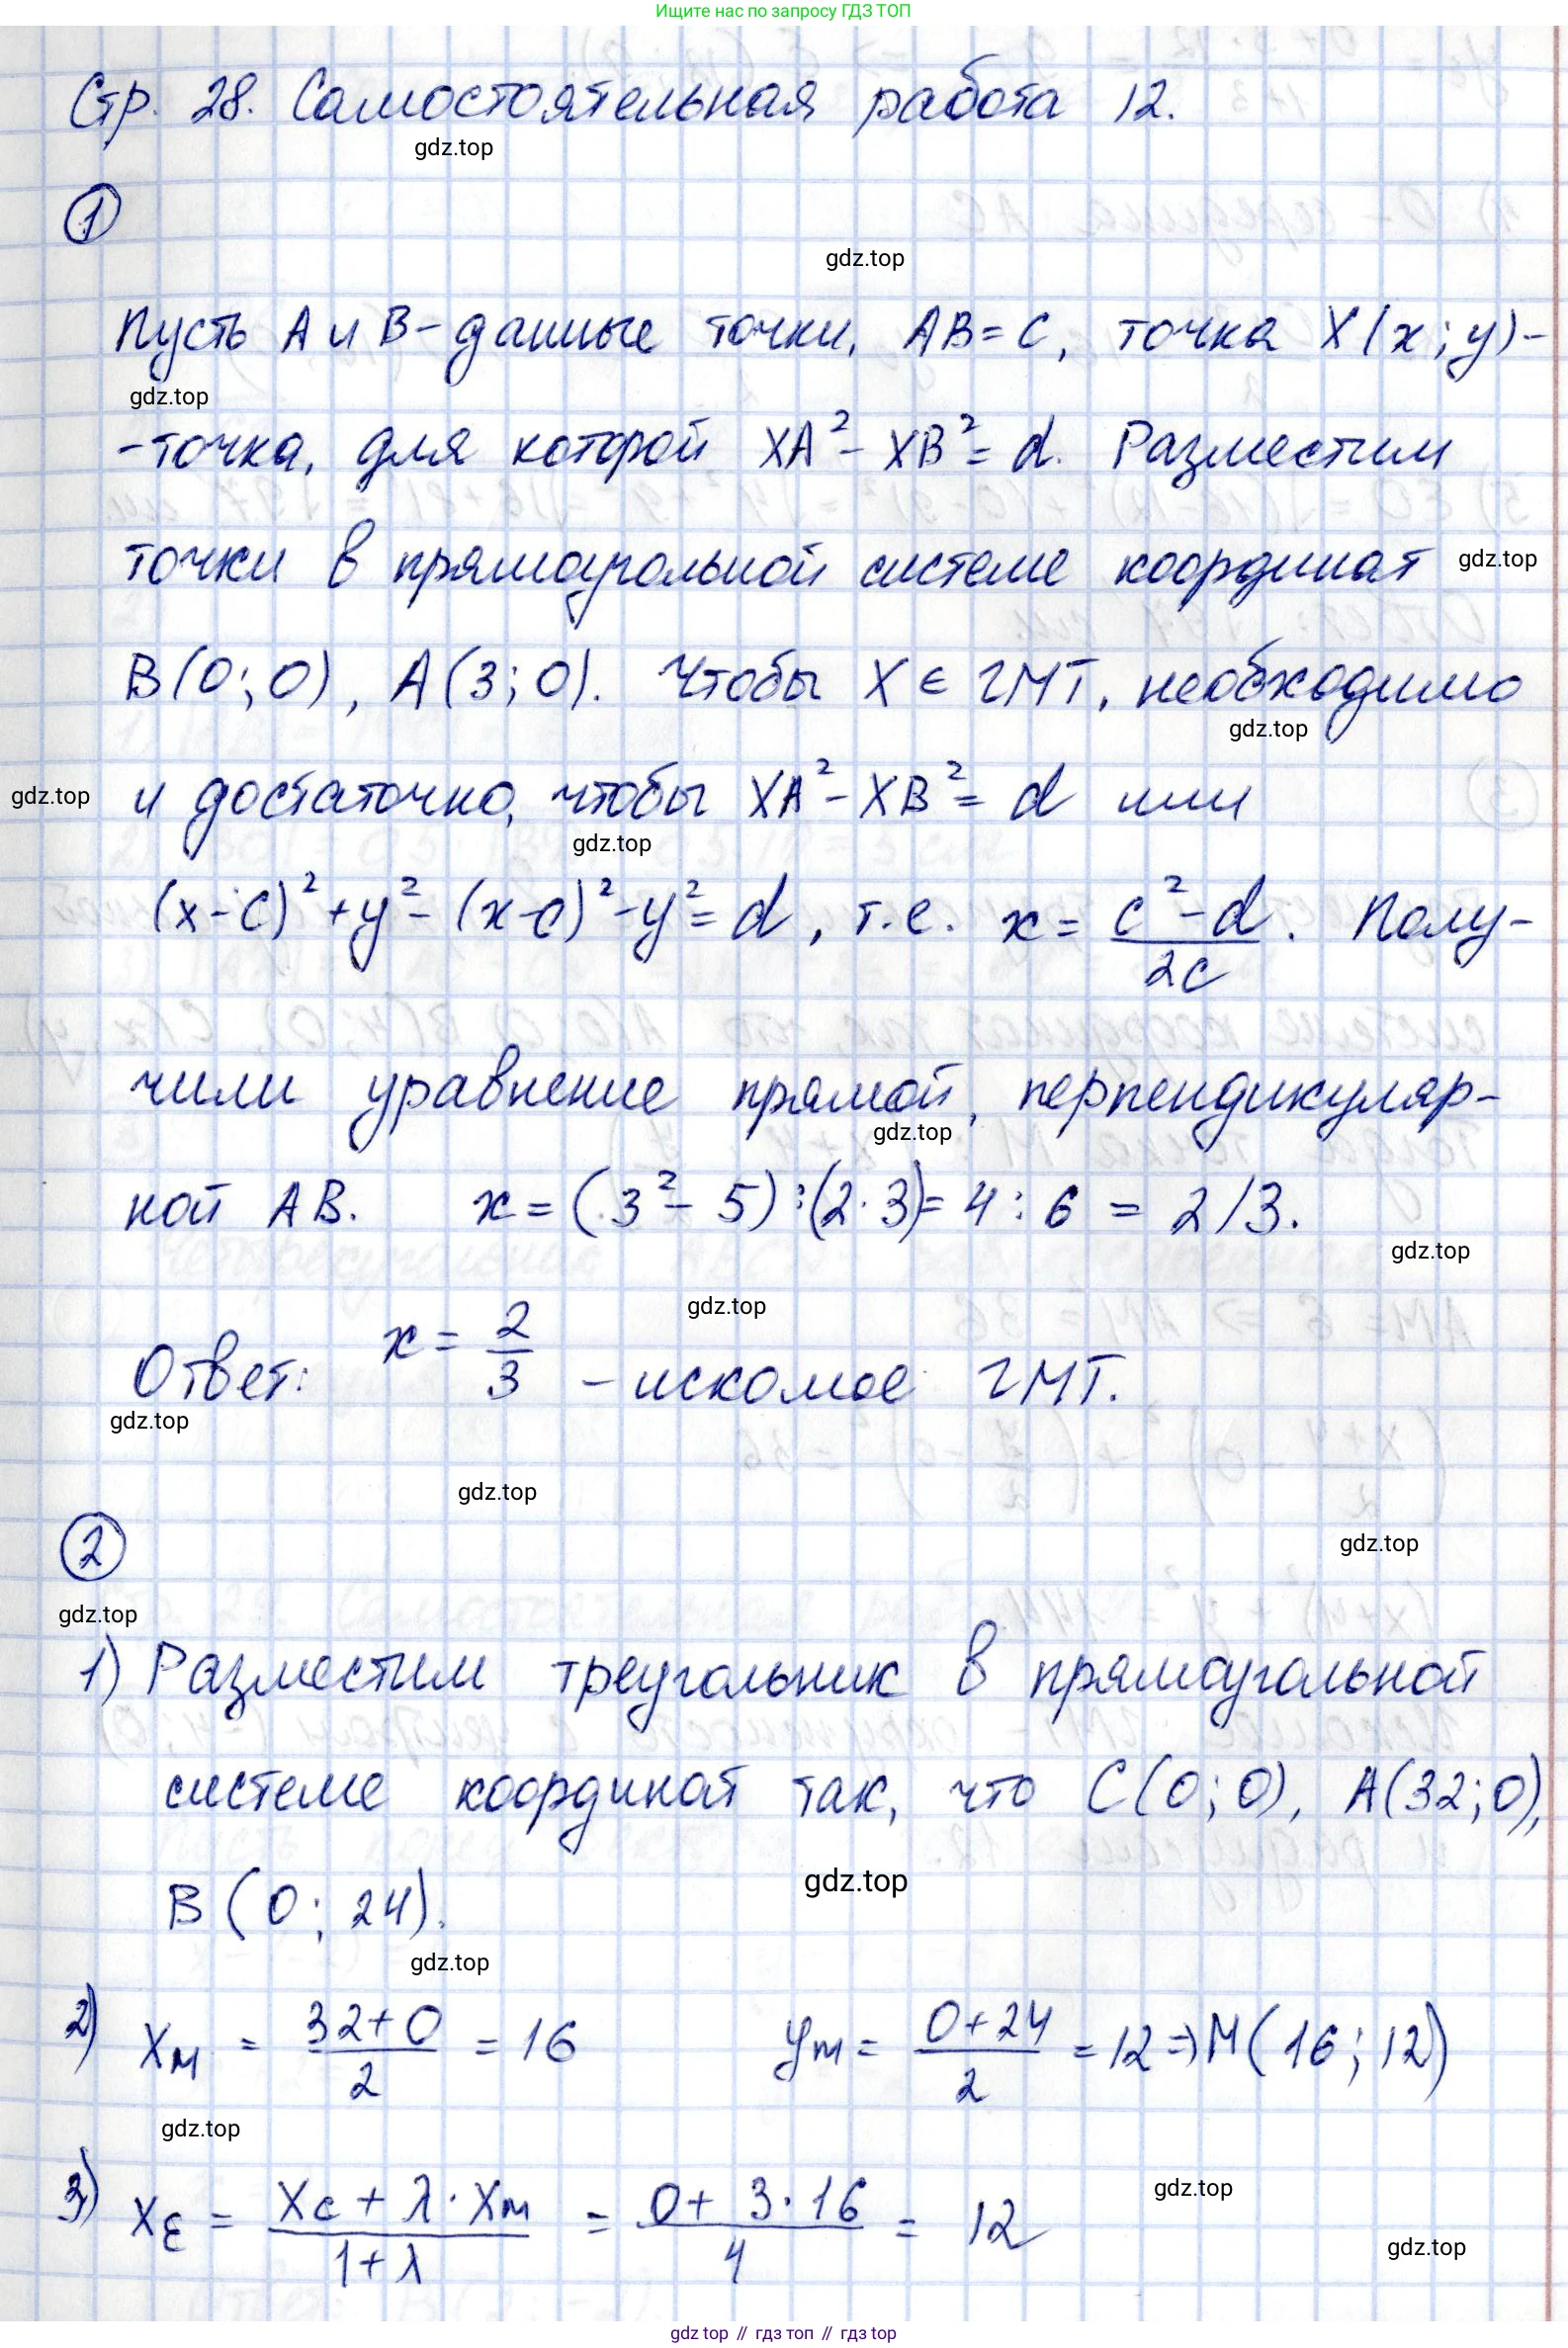 Ищите нас по запросу ГДЗ ТОП
Стр. 28. Самостоятельная работа 12.
gdz.top
1
gdz.top
Пусть А и В - данные точки, AB = c, точка X(x; y) -
gdz.top
- точка, для которой XA² - XB² = d. Разместим
точки в прямоугольной системе координат gdz.top
B(0; 0), A(3; 0). Чтобы X ∈ ГМТ, необходимо
gdz.top
gdz.top и достаточно, чтобы XA² - XB² = d или
gdz.top
(x - c)² + y² - (x - c)² - y² = d, т.е. x = (c² - d)/2c. Полу-
чили уравнение прямой, перпендикуляр-
gdz.top
ной AB. x = (3² - 5) : (2 · 3) = 4 : 6 = 2/3.
gdz.top
gdz.top
Ответ: x = 2/3 - искомое ГМТ.
gdz.top
gdz.top
gdz.top
2
gdz.top
1) Разместим треугольник в прямоугольной
системе координат так, что C(0; 0), A(32; 0),
gdz.top
B(0; 24).
gdz.top
2) Xм = (32 + 0)/2 = 16 yм = (0 + 24)/2 = 12 ⇒ M(16; 12)
gdz.top
gdz.top
3) XE = (Xc + λ · Xм)/(1 + λ) = (0 + 3 · 16)/4 = 12
gdz.top
gdz.top // гдз топ // гдз.top